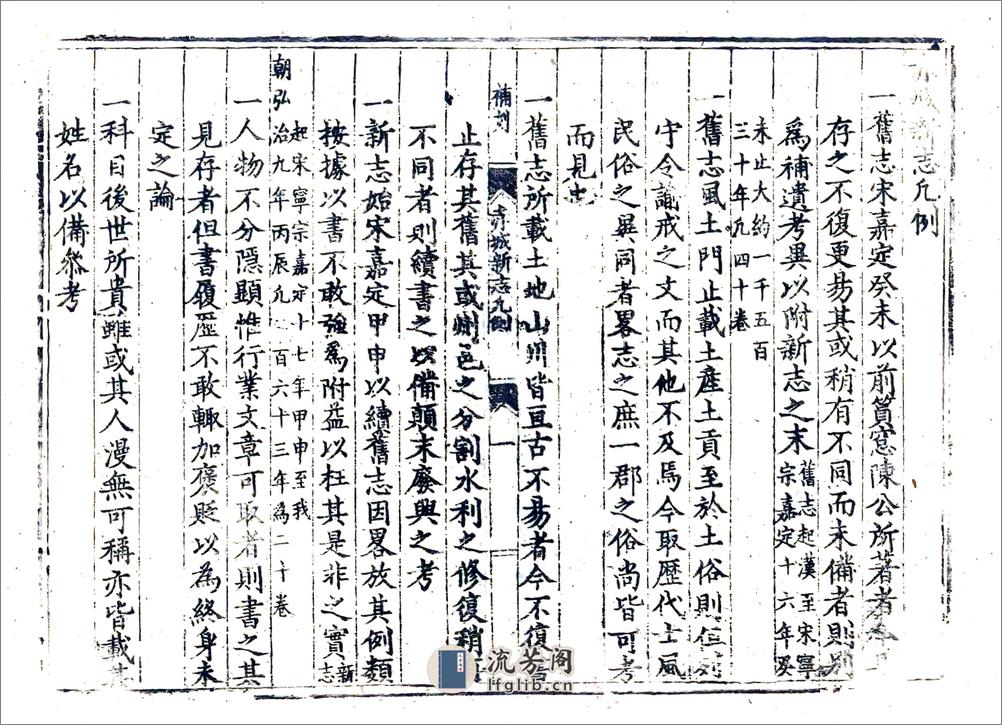 新志凡例
一舊志宋嘉定癸未以前篔窓陳公所著者
存之不復更易其或稍有不同而未備者則別
為補遺考異以附新志之末舊志起漢至宋寧宗嘉定十六年癸
未止大約一千五百三十年凡四十卷
一舊志風土門止載土產土貢至於土俗則但列
守令諭戒之文而其他不及焉今取歷代士風
民俗之異同者畧志之庶一郡之俗尚皆可考
而見
一舊志所載土地山川皆亘古不易者今不復
補刊
赤城新志凡例
一
止存其舊其或州邑之分割水利之修復稍
不同者則續書之以備顛末廢興之考
一新志始宋嘉定甲申以續舊志因畧放其例類
按據以書不敢強為附益以枉其是非之實新志
起宋寧宗嘉定十七年甲申至我
朝弘治九年丙辰凡二百六十三年為二十卷
一人物不分隱顯惟行業文章可取者則書之其
見存者但書履歷不敢輒加褒貶以為終身未
定之論
一科目後世所貴雖或其人漫無可稱亦皆載其
姓名以備叅考
流芳阁
lfglib.cn